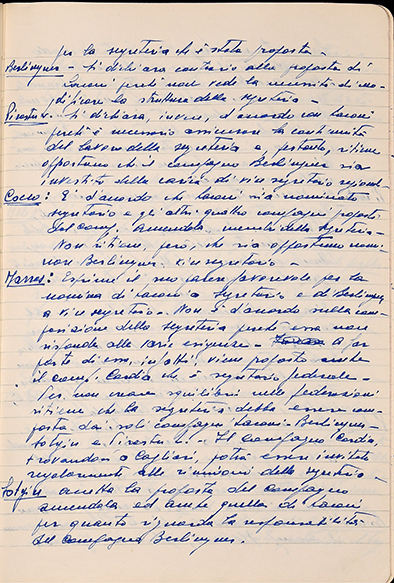 per la segreteria che è stata proposta –
Berlinguer – si dichiara contrario alla proposta di
Laconi perché non vede la necessità di mo-
dificare la struttura della segreteria –
Pirastu – si dichiara, invece, d'accordo con Laconi
perché è necessario assicurare la continuità
del lavoro della segreteria e, pertanto, ritiene
opportuno che il compagno Berlinguer sia
investito della carica di vice segretario
Cocco: È d'accordo che Laconi sia nominato
segretario e gli altri quattro compagni proposti
dal comp. Amendola, membri della segreteria –
Non ritiene, però, che sia opportuno nomi-
nare Berlinguer, vice segretario –
Marras: Esprime il suo parere favorevole per la
nomina di Laconi a segretario e di Berlinguer
a vice segretario – Non è d'accordo sulla com-
posizione della segreteria perché essa non
risponde alle varie esigenze – A far
parte di essa, infatti, viene proposto anche
il comp. Cardia che è segretario federale –
Per non creare squilibri nelle federazioni
ritiene che la segreteria debba essere com-
posta dai soli compagni Laconi – Berlinguer –
Sotgiu e Pirastu – Il compagno Cardia,
trovandosi a Cagliari, potrà essere invitato
regolarmente alle riunioni della segreteria –
Sotgiu accetta la proposta del compagno
Amendola ed anche quella di Laconi
per quanto riguarda la responsabilità
del compagno Berlinguer.